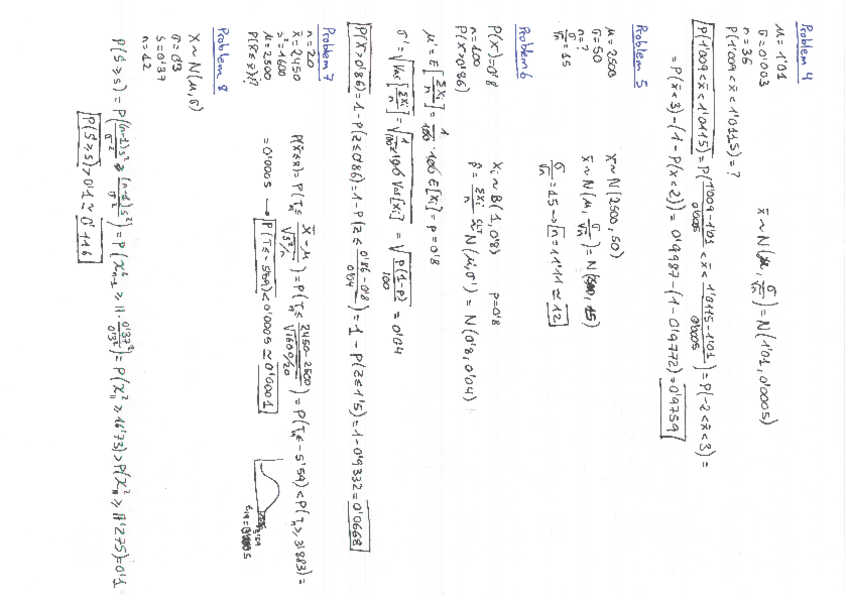 Problem 4
μ = 1'01
σ = 0'003
n = 36
P(1'009 < x̄ < 1'0115) = ?
x̄ ~ N(μ, σ/√n) = N(1'01, 0'0005)
P(1'009 < x̄ < 1'0115) = P(1'009-1'01/0'0005 < x̄ < 1'0115-1'01/0'0005) = P(-2 < x̄ < 3) =
= P(x̄ < 3) - (1 - P(x < 2)) = 0'9987 - (1 - 0'9772) = 0'9759
Problem 5
μ = 2500
σ = 50
n = ?
σ/√n = 15
x ~ N(2500, 50)
x̄ ~ N(μ, σ/√n) = N(, 15)
σ/√n = 15 → n = 11'11 ≃ 12
Problem 6
P(x) = 0'8
n = 100
P(X > 0'86)
Xi ~ B(1, 0'8) p = 0'8
p̂ = ΣXi/n ≈ CLT N(μ', σ') = N(0'8, 0'04)
μ' = E[ΣXi/n] = 1/100 · 100 E[Xi] = p = 0'8
σ' = √Var[ΣXi/n] = √1/100² 100 Var[Xi] = √p(1-p)/100 = 0'04
P(X > 0'86) = 1 - P(Z ≤ 0'86) = 1 - P(Z ≤ 0'86-0'8/0'04) = 1 - P(Z ≤ 1'5) = 1 - 0'9332 = 0'0668
Problem 7
n = 20
x̄ = 2450
s² = 1600
μ = 2500
P(X̄ ≤ x̄)?
P(X̄ ≤ x̄) = P(T ≤ x̄-μ/√s²/n) = P(T ≤ 2450-2500/√1600/20) = P(T ≤ -5'59) < P(T > 3'883) =
= 0'0005 → P(T ≤ -5'59) < 0'0005 ≃ 0'0001
Problem 8
X ~ N(μ, σ)
σ = 0'3
s = 0'37
n = 12
P(S ≥ s) = P((n-1)S²/σ² ≥ (n-1)s²/σ²) = P(χ²n-1 ≥ 11·0'37²/0'3²) = P(χ²11 ≥ 16'73) > P(χ²11 ≥ 17'275) = 0'1
P(S ≥ s) > 0'1 ≃ 0'116